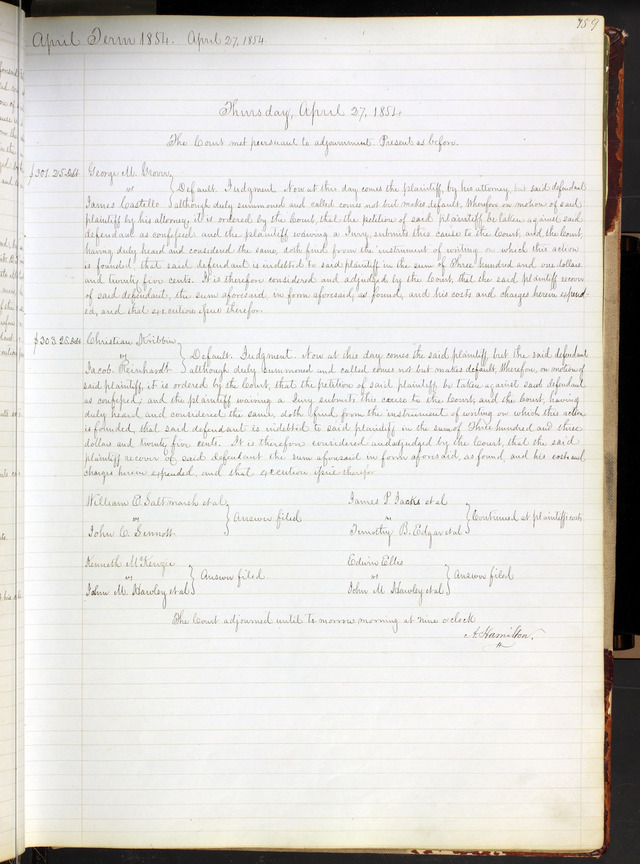 759
April Term 1854. April 27, 1854.
Thursday, April 27, 1854.
The Court met pursuant to adjournment. Present as before.
$301.25 Debt George M.
vs } Default. Judgment. Now at this day comes the plaintiff, by his attorney, but said defendant
James Costello although duly summoned and called comes not but makes default. Wherefore on motion of said
plaintiff by his attorney, it is ordered by the Court, that the petition of said plaintiff be taken against said
defendant as confessed and the plaintiff waiving a Jury, submits this cause to the Court, and the Court,
having duly heard and considered the same, doth find from the instrument of writing on which this action
is founded, that said defendant is indebted to said plaintiff in the sum of Three hundred and one dollars
and twenty five cents. It is therefore considered and adjudged by the Court, that the said plaintiff recover
of said defendant, the sum aforesaid, in form aforesaid, as found, and his costs and charges herein expend-
ed, and that execution issue therefor.
$303.25 Debt Christian Kribbin
vs } Default. Judgment. Now at this day, comes the said plaintiff, but the said defendant
Jacob Reinhardt although duly summoned and called comes not but makes default, Wherefore, on motion of
said plaintiff, it is ordered by the Court, that the petition of said plaintiff, be taken against said defendant
as confessed; and the plaintiff waiving a Jury submits this cause to the Court, and the Court, having
duly heard and considered the same, doth find from the instrument of writing on which this action
is founded, that said defendant is indebted to said plaintiff in the sum of Three hundred and three
dollars and twenty five cents. It is therefore considered and adjudged by the Court, that the said
plaintiff recover of said defendant the sum aforesaid in form aforesaid, as found, and his costs and
charges herein expended, and that execution issue therefor
William C. Saltmarsh et al
vs } Answer filed
John C. Sennott
James P. Jacks et al
vs } Continued at plaintiffs costs
Timothy B. Edgar et al
Kenneth McKenzie
vs } Answer filed.
John M. Hawley et al
Edwin Ellis
vs } Answer filed
John M. Hawley et al
The Court adjourned until to morrow morning at nine o'clock
A. Hamilton.